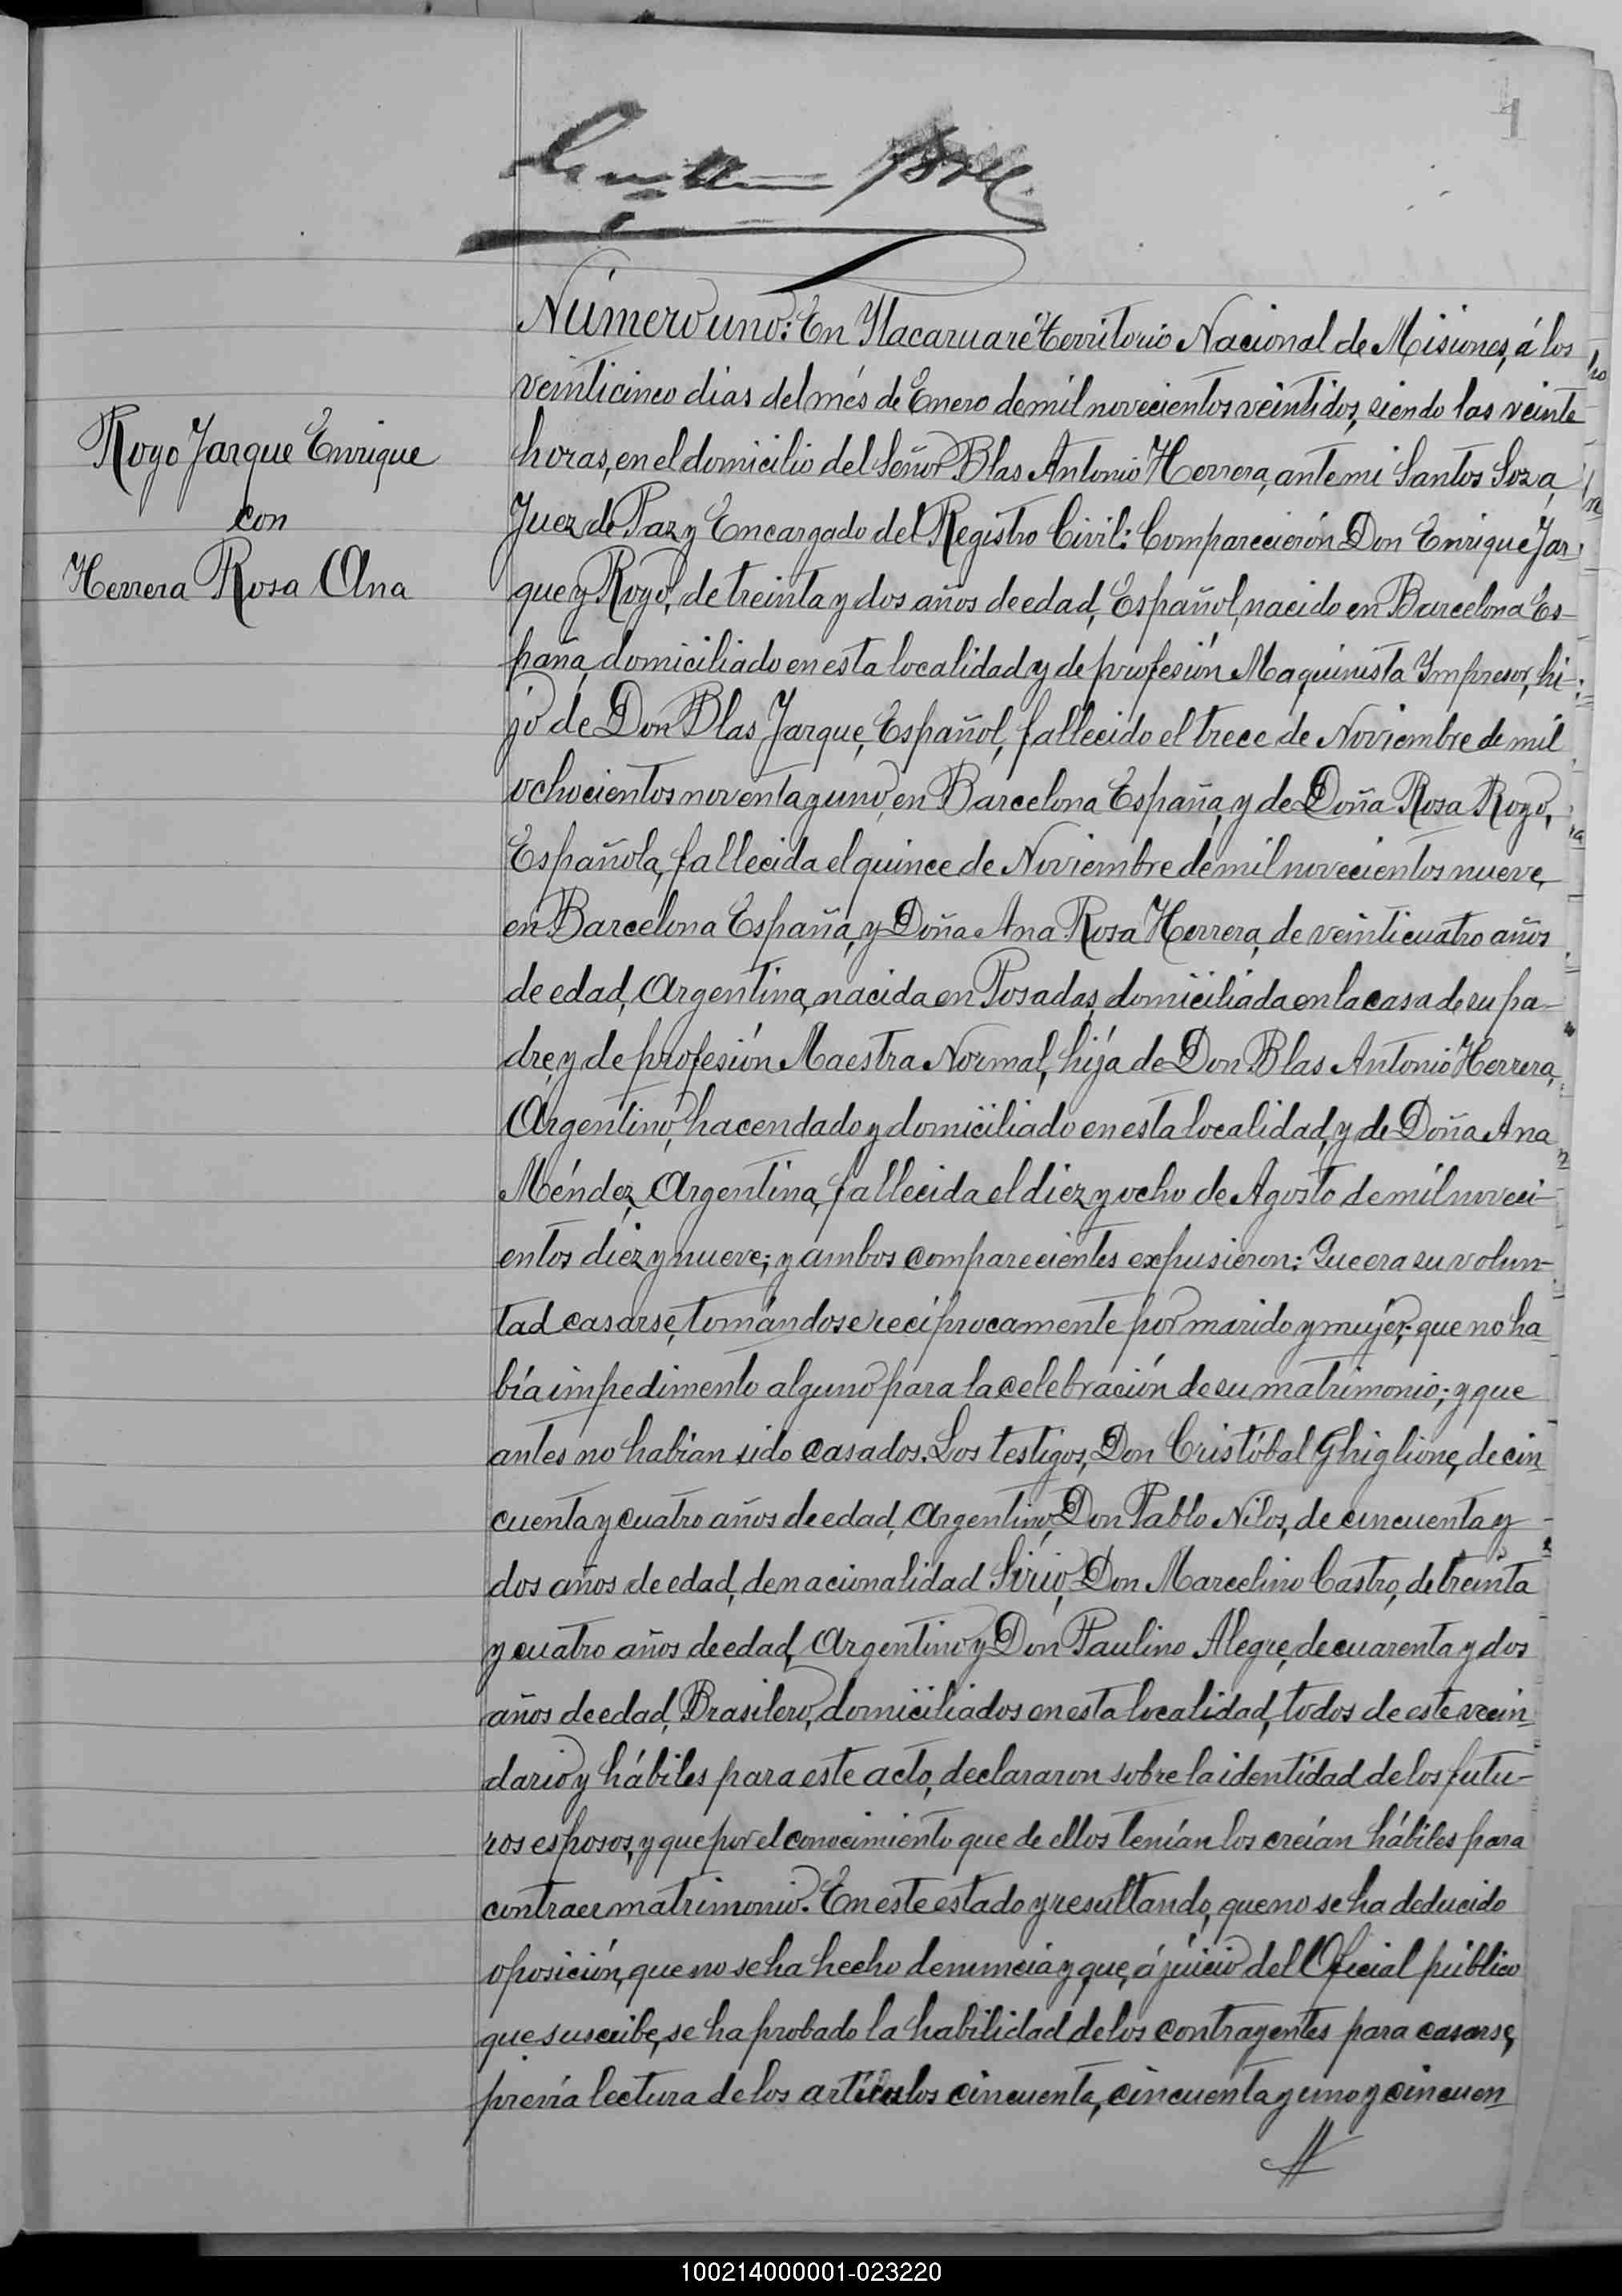 1
Número uno: En Ytacaruaré Territorio Nacional de Misiones, á los
veinticinco dias del més de Enero de mil novecientos veintidos, siendo las veinte
horas, en el domicilio del Señor Blas Antonio Herrera, ante mi Santos Soza,
Juez de Paz y Encargado del Registro Civil: Comparecieron Don Enrique Jar
que y Royo, de treinta y dos años de edad, Español, nacido en Barcelona Es-
paña, domiciliado en esta localidad y de profesión Maquinista Impresor, hi-
jo de Don Blas Jarque, Español, fallecido el trece de Noviembre de mil
ochocientos noventa y uno, en Barcelona España, y de Doña Rosa Royo,
Española, fallecida el quince de Noviembre de mil novecientos nueve,
en Barcelona España, y Doña Ana Rosa Herrera, de veinticuatro años
de edad, Argentina, nacida en Posadas, domiciliada en la casa de su pa-
dre, y de profesión Maestra Normal, hija de Don Blas Antonio Herrera,
Argentino, hacendado y domiciliado en esta localidad, y de Doña Ana
Méndez, Argentina, fallecida el diez y ocho de Agosto de mil noveci-
entos diez y nueve; y ambos comparecientes expusieron: Que era su volun-
tad casarse, tomándose recíprocamente por marido y mujer; que no ha
bía impedimento alguno para la celebración de su matrimonio; y que
antes no habían sido casados. Los testigos, Don Cristóbal Ghiglione, de cin
cuenta y cuatro años de edad, Argentino, Don Pablo Nilos, de cincuenta y
dos años de edad, de nacionalidad Sirio, Don Marcelino Castro, de treinta
y cuatro años de edad, Argentino y Don Paulino Alegre, de cuarenta y dos
años de edad, Brasilero, domiciliados en esta localidad, todos de este vecin
dario y hábiles para este acto, declararon sobre la identidad de los futu-
ros esposos, y que por el conocimiento que de ellos tenían los creían hábiles para
contraer matrimonio. En este estado y resultando, que no se ha deducido
oposición, que no se ha hecho denuncia y que, á juicio del Oficial público
que suscribe, se ha probado la habilidad de los contrayentes para casarse,
previa lectura de los artículos cincuenta, cincuenta y uno y cincuen
Royo Jarque Enrique
con
Herrera Rosa Ana
100214000001-023220